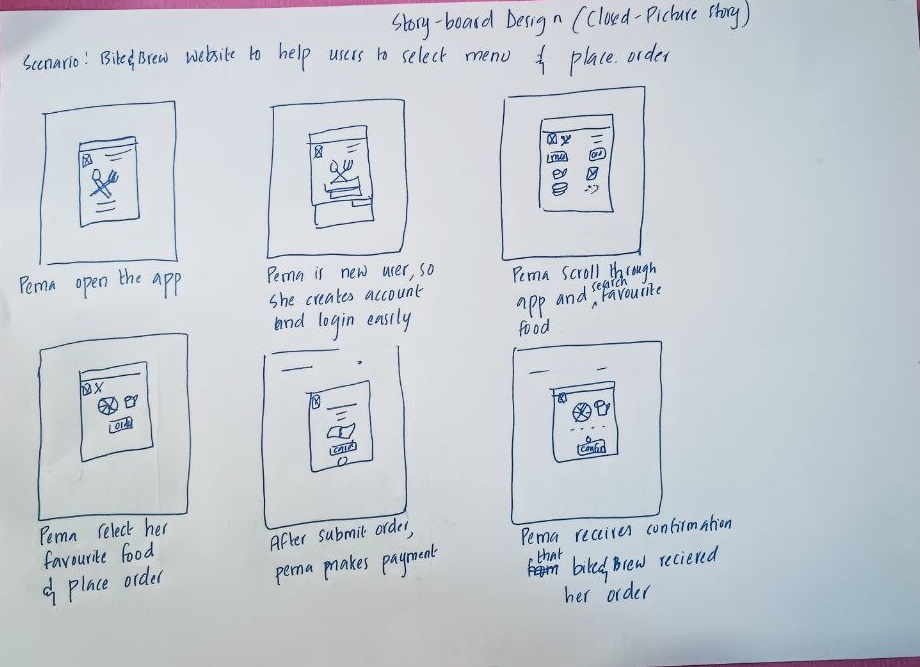 Story-board Design (Closed-Picture story)
Scenario: Bite&Brew website to help users to select menu & place order
Pema open the app
Pema is new user, so
she creates account
and login easily
Pema scroll through
app and search favourite
food
Order
Pema select her
favourite food
& place order
After submit order,
pema makes payment
Pema receives confirmation
that bite&Brew recieved
her order